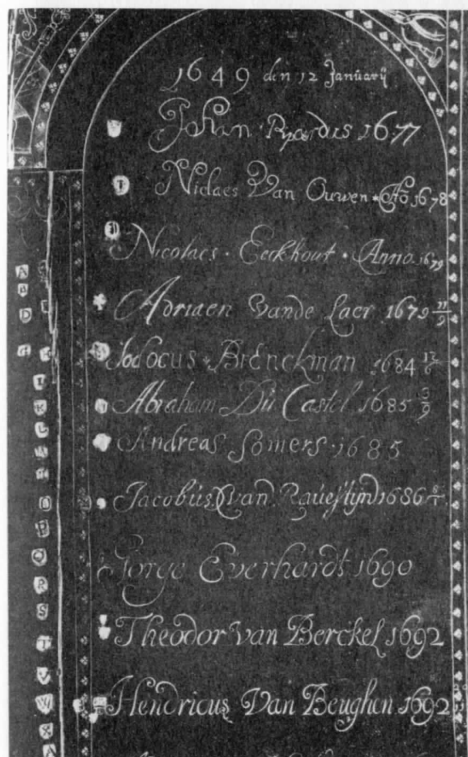 1649 den 12 Januarij
Johan Ryardis 1677
Niclaes Van Ouwen Ao 1678
Nicolaes Eeckhout Anno 1679
Adriaen vande Laer 1679 11/9
Jodocus Brenckman 1684
Abraham Du Castel 1685
Andreas Somers 1685
Jacobus van Rauestijn 1686
Jorge Everhardt 1690
Theodor van Berckel 1692
Hendricus Van Beughen 1692